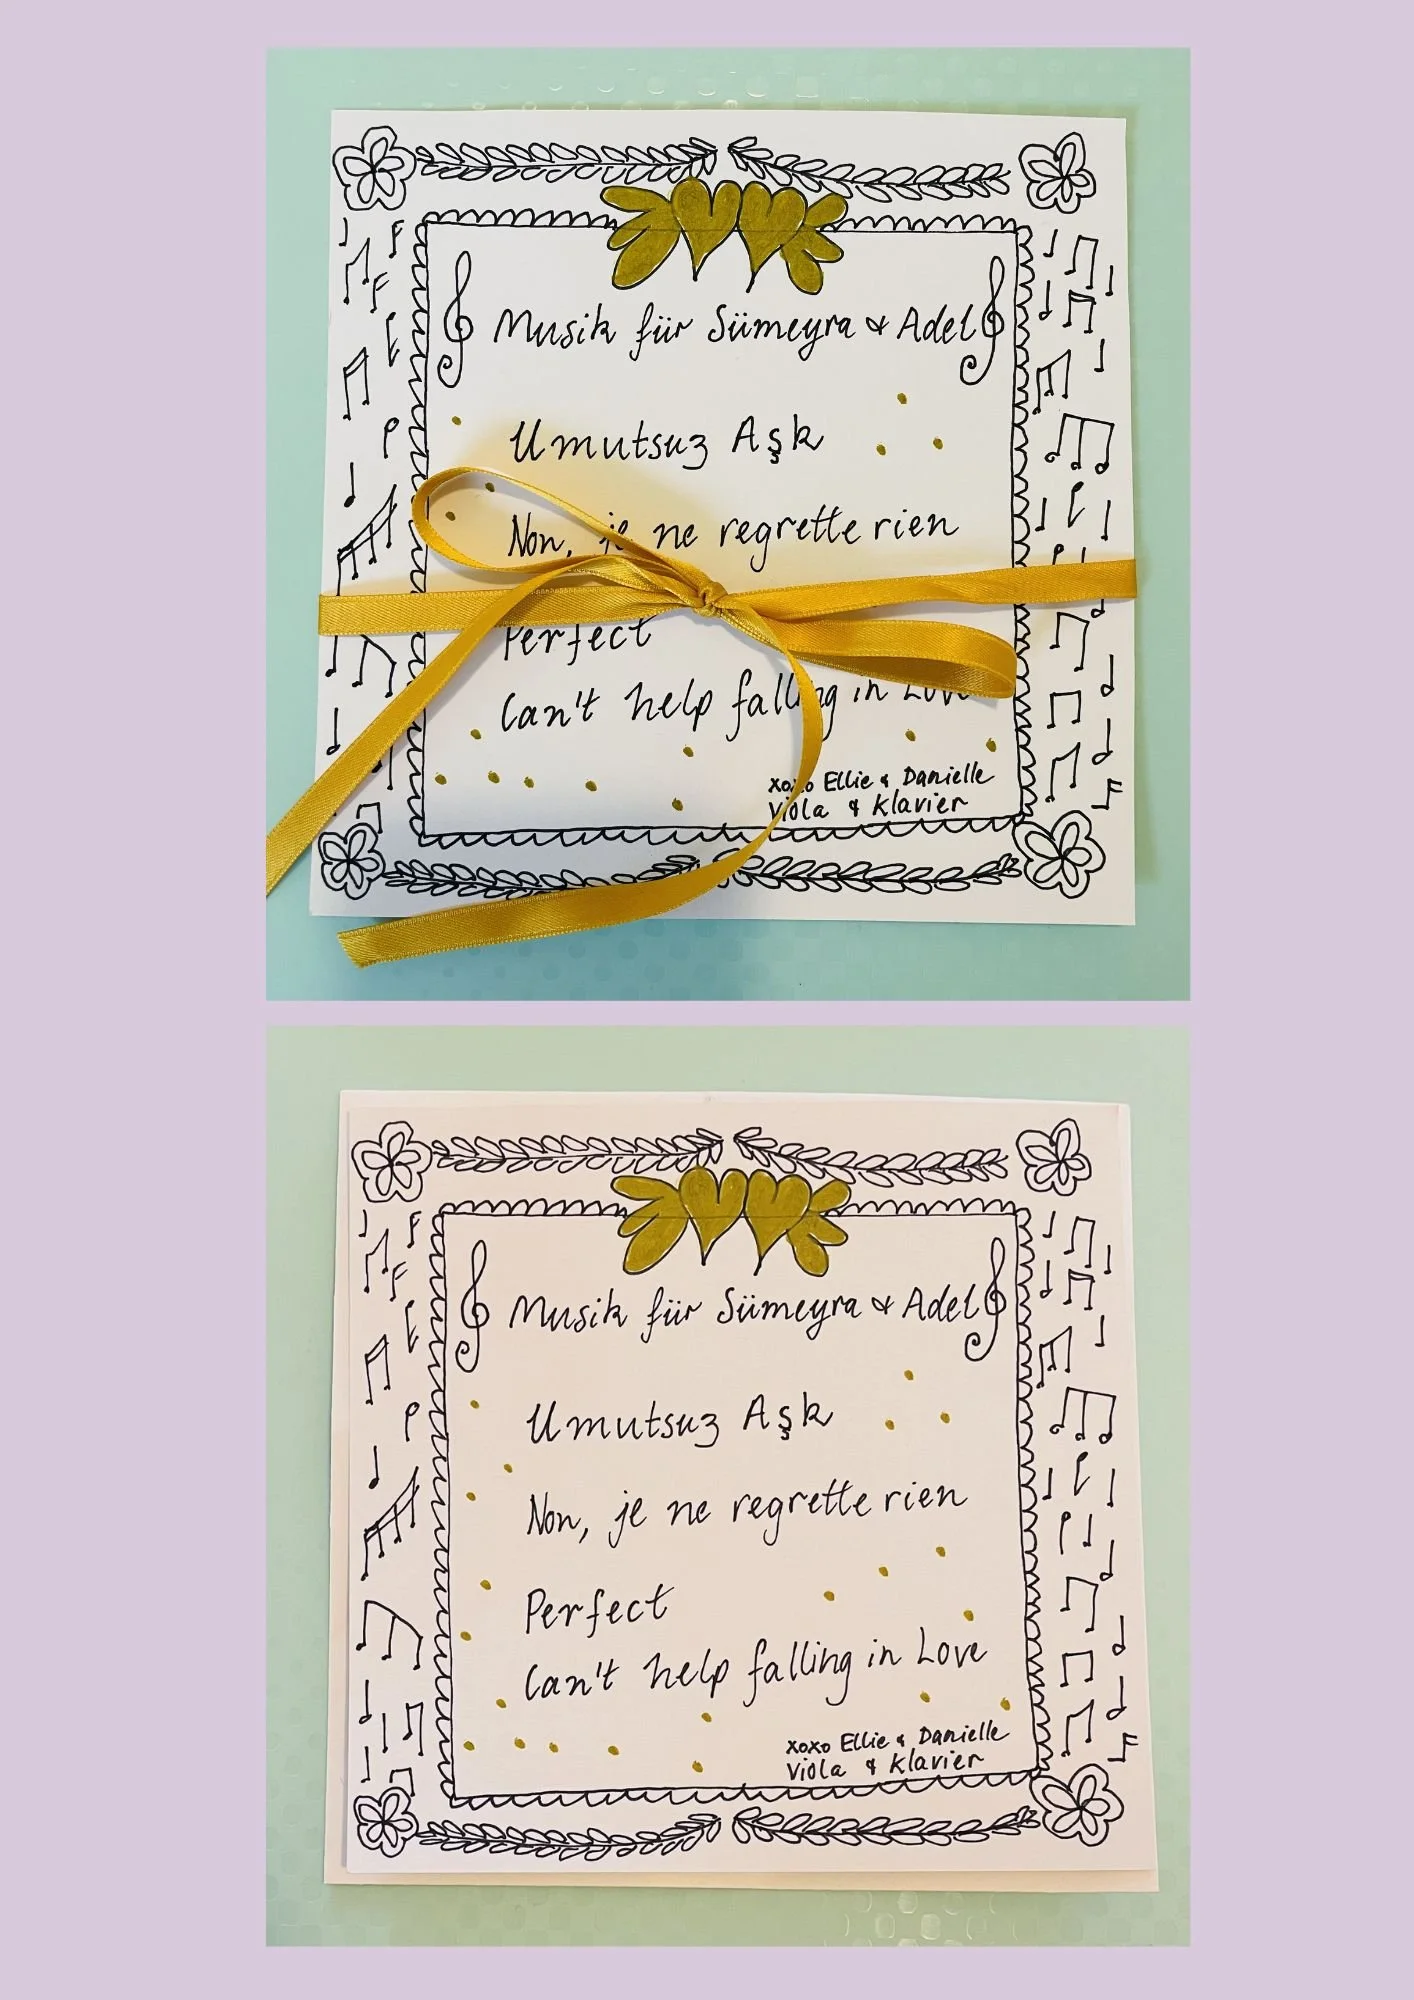 Musik für Sümeyra & Adel
Umutsuz Aşk
Non, je ne regrette rien
Perfect
Can't help falling in Love
xoxo Ellie & Danielle
Viola & Klavier
Musik für Sümeyra & Adel
Umutsuz Aşk
Non, je ne regrette rien
Perfect
Can't help falling in Love
xoxo Ellie & Danielle
Viola & Klavier